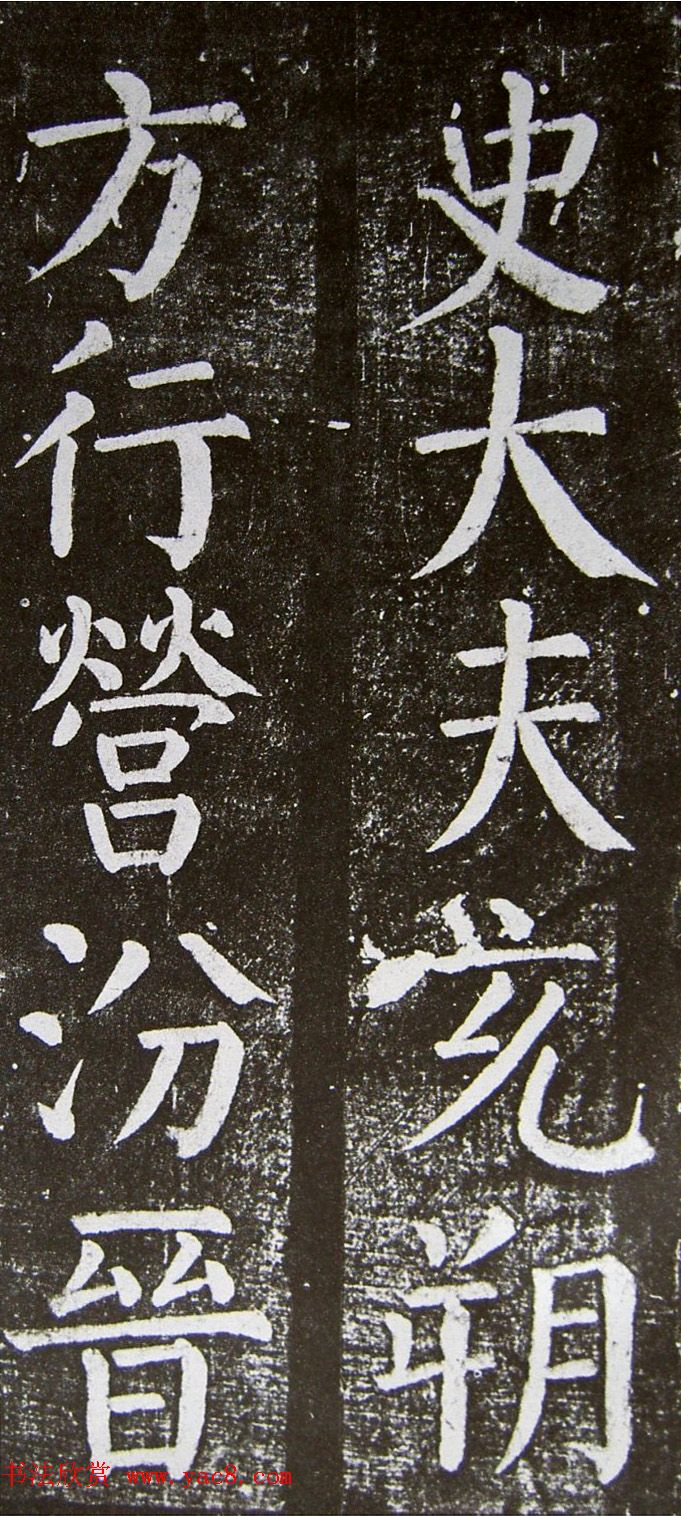 史大夫充朔
方行營汾晉
书法欣赏 www.yac8.com